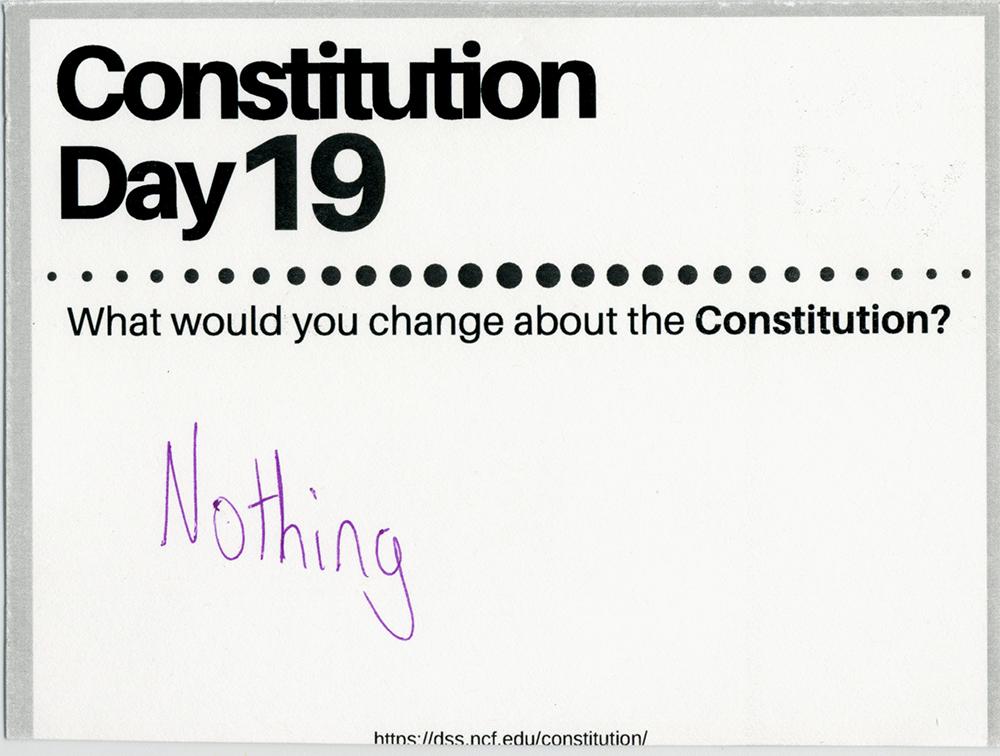 Constitution
Day 19
What would you change about the Constitution?
Nothing
https://dss.ncf.edu/constitution/